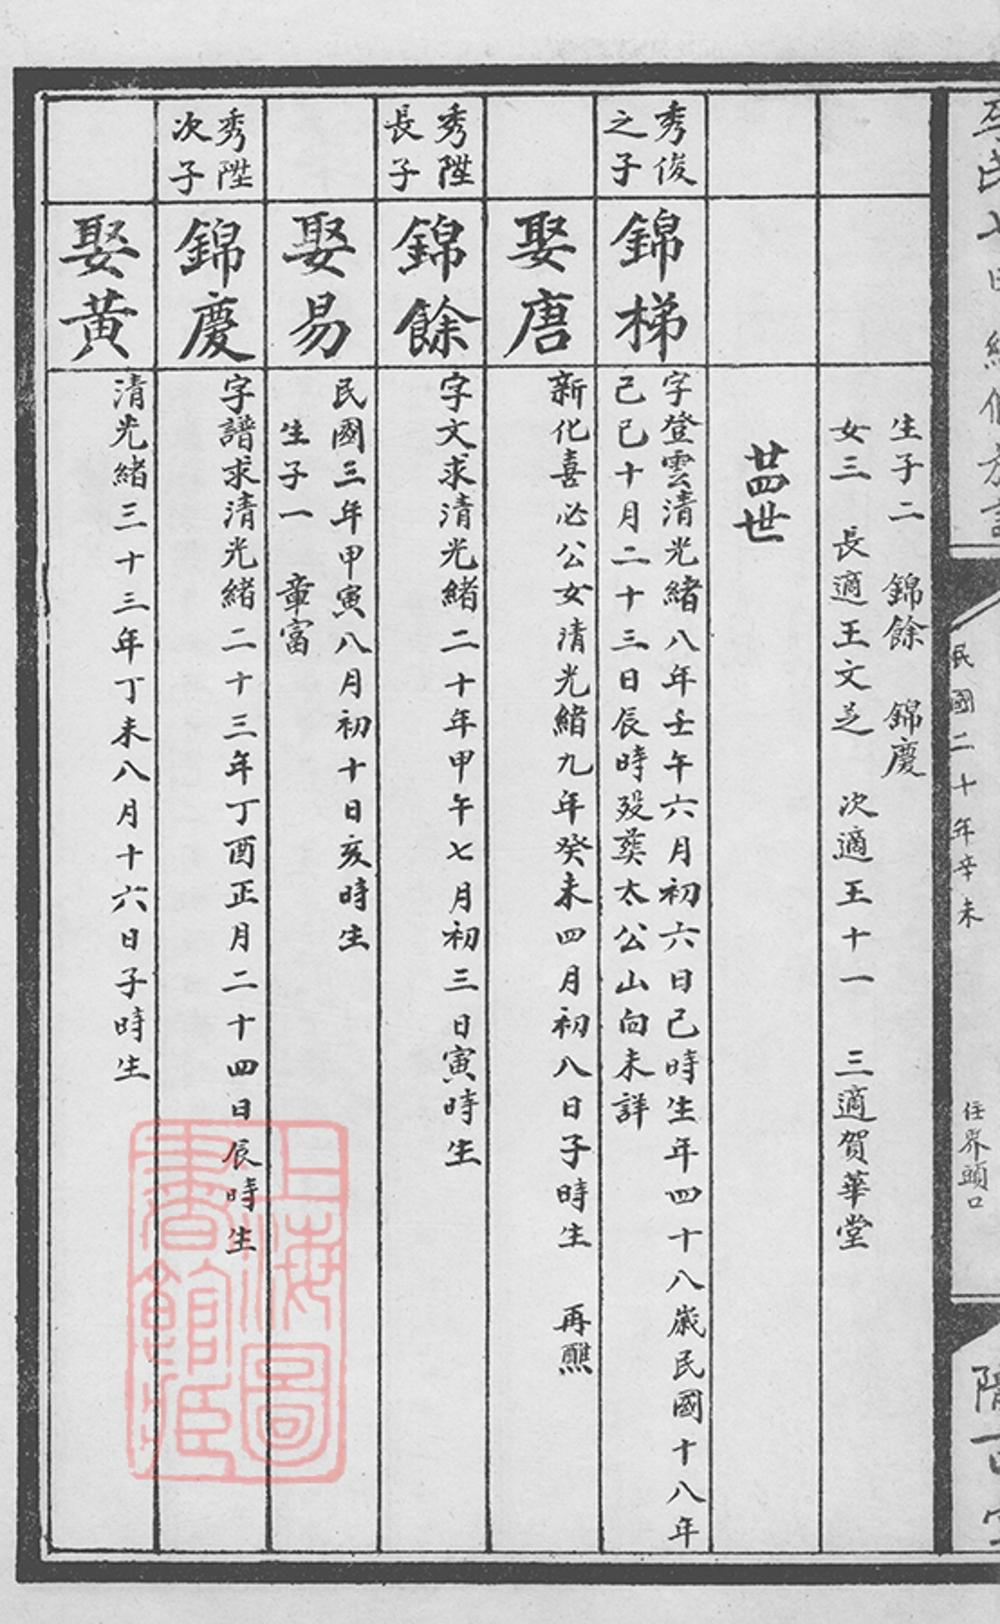 民國二十年辛未
住界頭口
生子二 錦餘 錦慶
女三 長適王文芝 次適王十一 三適賀華堂
卄四世
秀俊
之子
錦梯
字登雲清光緒八年壬午六月初六日己時生年四十八歲民國十八年
己巳十月二十三日辰時歿葬太公山向未詳
娶唐
新化喜必公女清光緒九年癸未四月初八日子時生 再醮
秀陞
長子
錦餘
字文求清光緒二十年甲午七月初三日寅時生
娶易
民國三年甲寅八月初十日亥時生
生子一 章富
秀陞
次子
錦慶
字譜求清光緒二十三年丁酉正月二十四日辰時生
娶黃
清光緒三十三年丁未八月十六日子時生
上海圖
書館藏